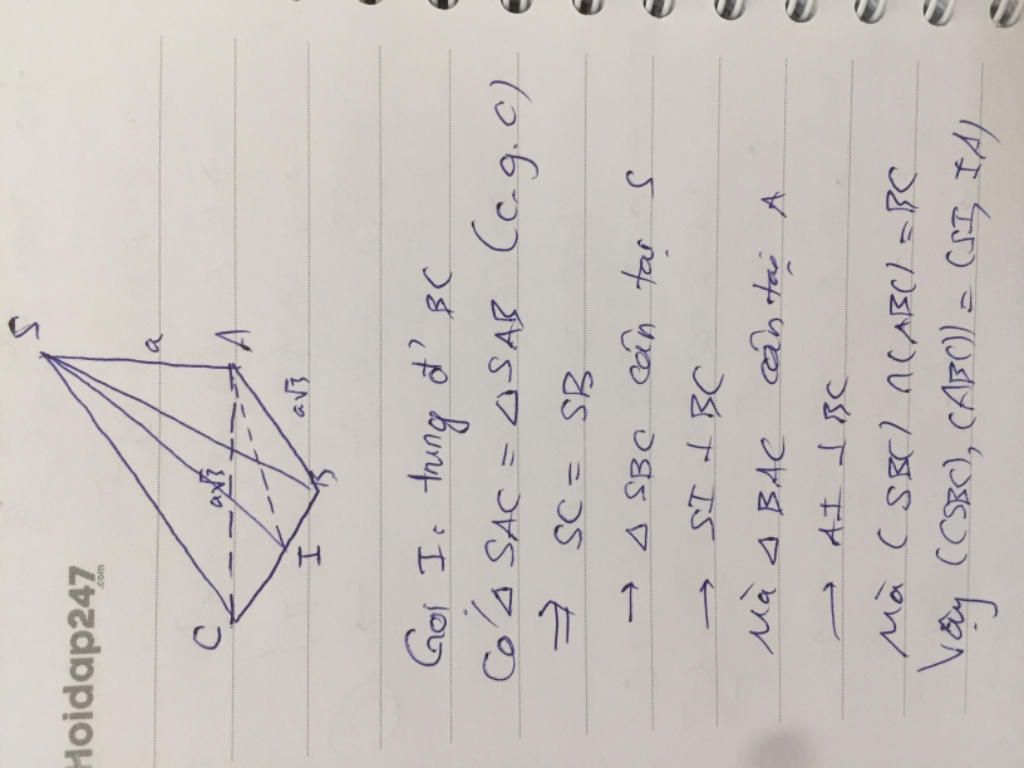 Hoidap247.com
S
a
C
a√3
A
a√3
I
B
Gọi I: trung đ' BC
Có Δ SAC = Δ SAB (c.g.c)
⇒ SC = SB
→ Δ SBC cân tại S
→ SI ⊥ BC
Mà Δ BAC cân tại A
→ AI ⊥ BC
Mà (SBC) ∩ (ABC) = BC
Vậy ((SBC), (ABC)) = (SI, IA)